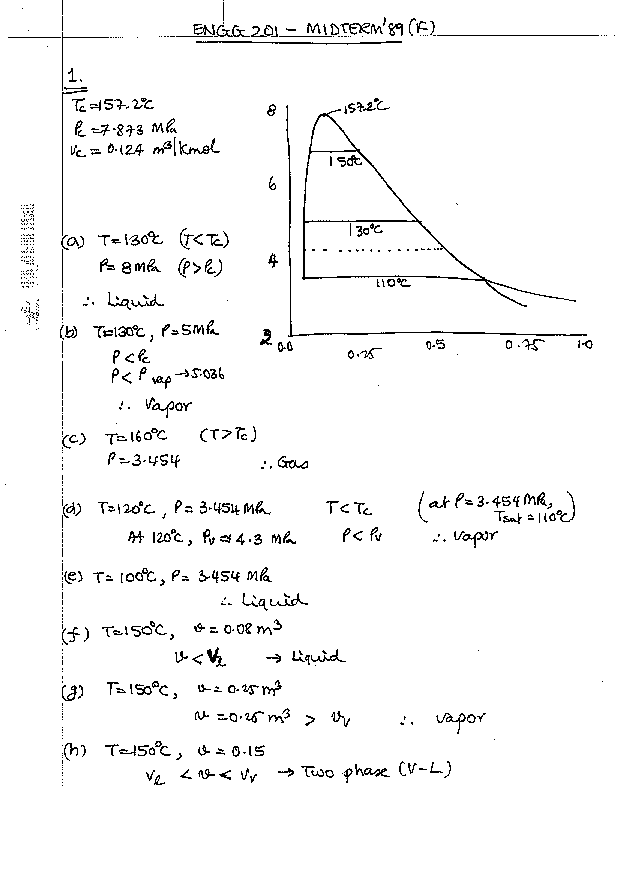 ENGG 201 - MIDTERM '89 (F)
1.
Tc = 157.2°C
Pc = 7.873 MPa
Vc = 0.124 m³/Kmol
8
157.2°C
150°C
6
130°C
4
110°C
2
0.0
0.25
0.5
0.75
1.0
(a) T=130°C (T<Tc)
P= 8MPa (P>Pc)
∴ Liquid
(b) T=130°C, P=5MPa
P<Pc
P<P vap → 5.036
∴ Vapor
(c) T=160°C (T>Tc)
P=3.454 ∴ Gas
(d) T=120°C, P= 3.454MPa T<Tc (at P=3.454 MPa, Tsat = 110°C)
At 120°C, Pv = 4.3 MPa P<Pv ∴ vapor
(e) T= 100°C, P= 3.454 MPa
∴ Liquid
(f) T=150°C, v = 0.08 m³
v < Vl → Liquid
(g) T=150°C, v= 0.25m³
v =0.25 m³ > Vv ∴ vapor
(h) T=150°C, v = 0.15
Vl < v < Vv → Two phase (V-L)